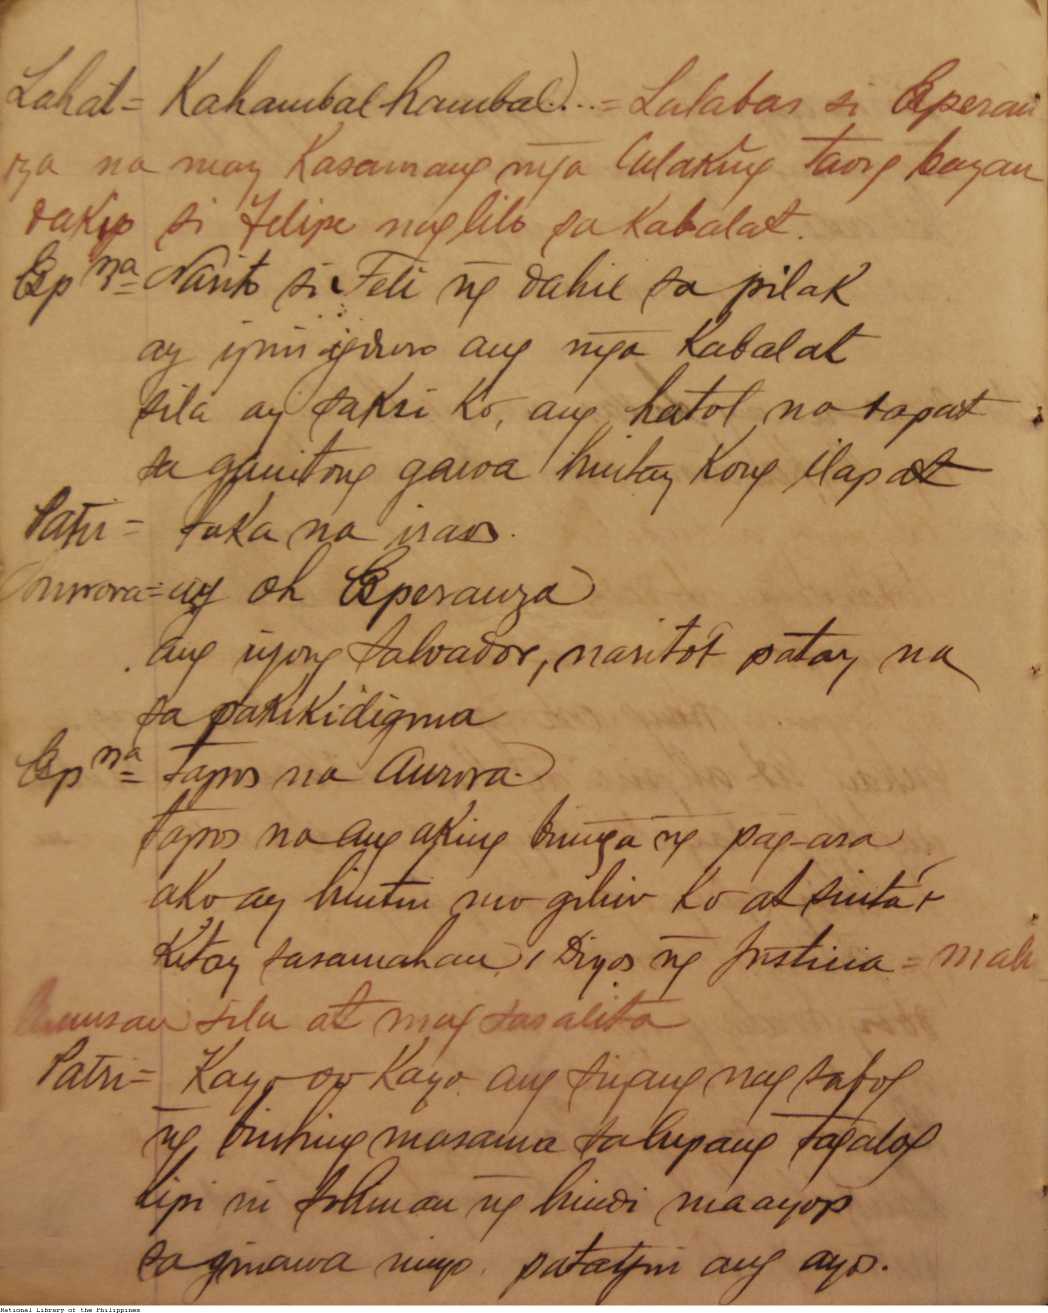 Lahat = Kahambal hambal)... = Lalabas si Esperan
za na may Kasamang mga lalaking taong bayan
dakip si Felipe naglilo sa Kabalat.
Espna = Narito si Feli ng dahil sa pilak
ay ang mga Kabalat
sila ay saksi Ko, ang hatol na sapat
sa ganitong gawa hintay Kong ilapat
Patri = saka na iraos.
Aurora = ay oh Esperanza
ang iyong Salvador, narito't patay na
sa pakikidigma
Espna = Tapos na Aurora.
Tapos na ang aking bunga ng pag-asa
ako ay hintin mo giliw Ko at sinta't
Kita'y sasamahan, Diyos ng Justicia = mali
sila at mag sasalita
Patri = Kayo oo Kayo ang siyang nag sabog
ng binhing masama sa lupang tagalog
lipi ni Soliman ng hindi maayop
sa ginawa ninyo. patayin ang ayo.
National Library of the Philippines